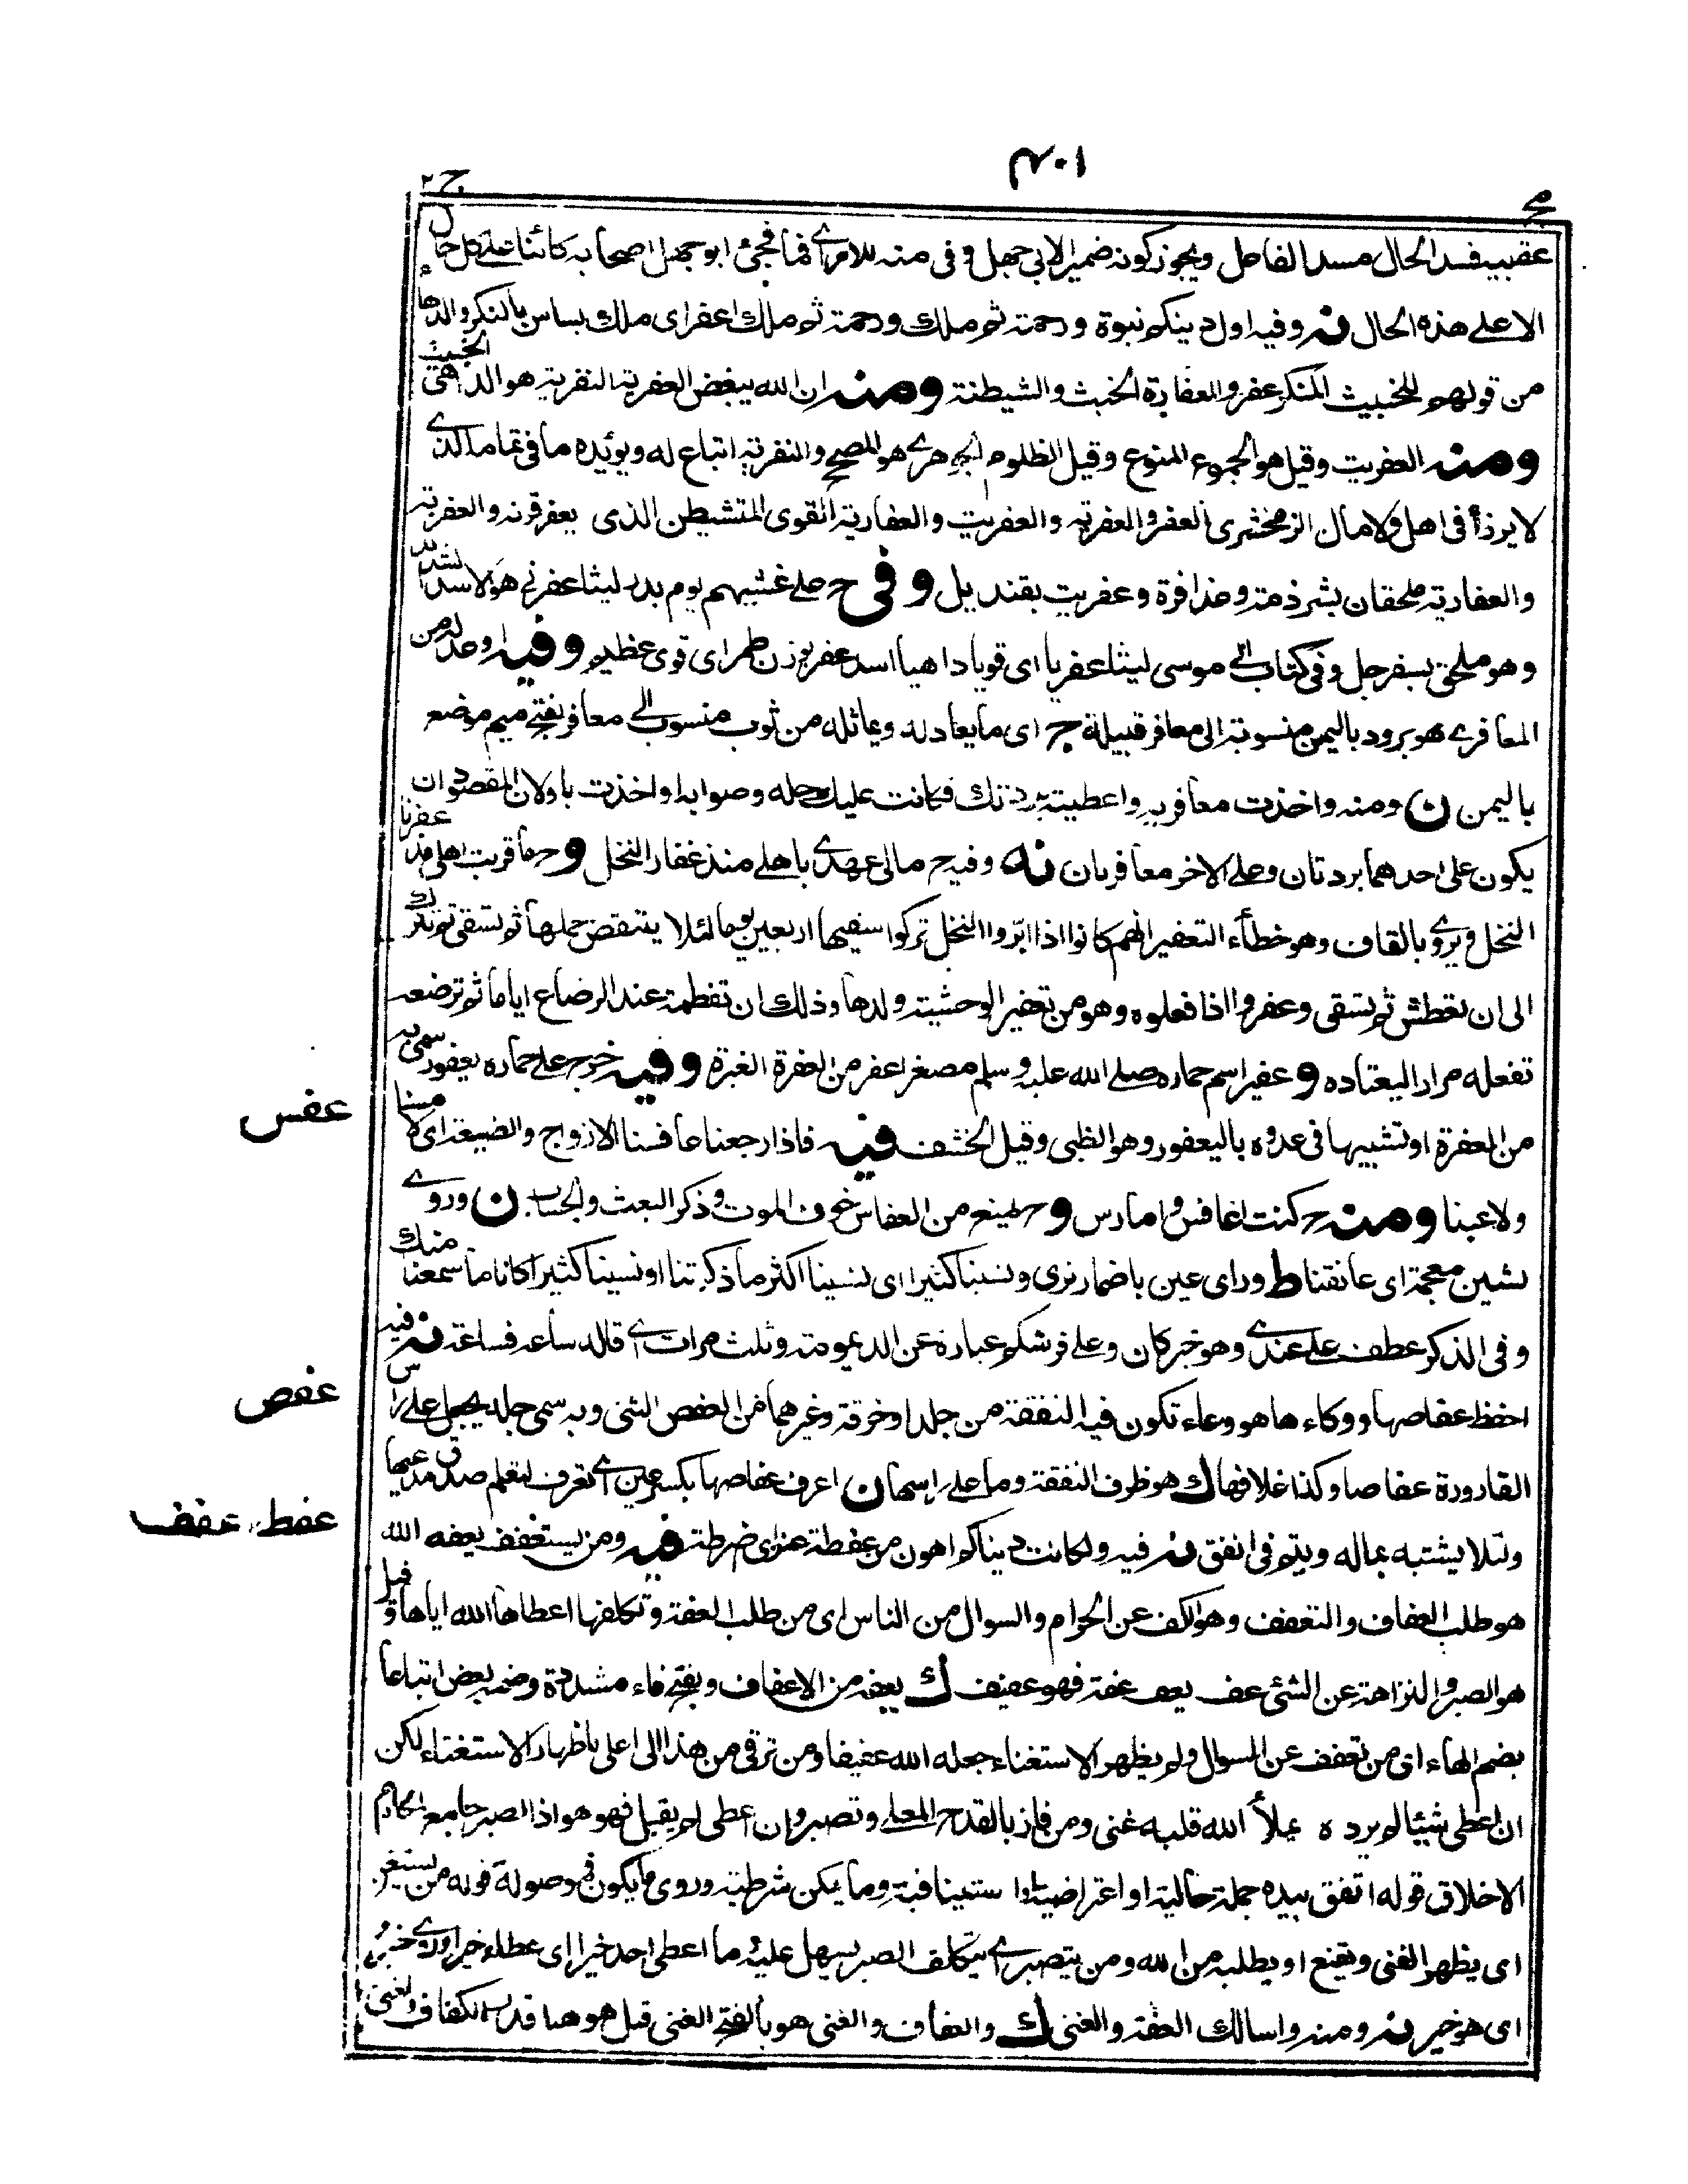 ٤٠١
ج ٢
عقبيه فسد الحال مسد الفاعل ويجوز كونه ضمير الابى جهل وفى منه للامراى فما فجئ ابو جهل اصحابه كائنا على كل حال
الا على هذه الحال نه وفيه اول دينكم نبوة ورحمة ثم ملك ورحمة ثم ملك اعفر اى ملك يساس بالنكر والدهاء
من قولهم للخبيث المنكر عفر والعفارة الخبث والشيطنة ومنه ان الله يبغض العفرية النفرية هو الداهى الخبيث
ومنه العفريت وقيل هو الجموع المنوع وقيل الظلوم الجوهرى هو المصحح والنفرية اتباع له ويؤيده ما فى تمامه الذى
لا يرزأ فى اهل ولا مال الزمخشرى العفر والعفرية والعفريت والعفارية القوى المتشيطن الذى يعفر قرنه والعفرية
والعفارية ملحقان بشرذمة وعذافرة وعفريت بقنديل وفى ح على غشيهم يوم بدر ليثا عفرنى هو الاسد الشديد
وهو ملحق بسفرجل وفى كتاب الى موسى ليثا عفريا اى قويا داهيا اسد عفر بوزن طمر اى قوى عظيم وفيه او عدله من
المعافرى هو برود باليمن منسوبة الى معافر قبيلة ج اى ما يعادله ويماثله من ثوب منسوب الى معافر بفتح ميم موضع
باليمن ن ومنه واخذت معافريه واعطيته بردتك فكانت عليك حلة وصوابه او اخذت باو لان المقصود ان
يكون على احدهما بردتان وعلى الاخر معافريان نه وفيه ح مالى عهد باهلى منذ عفار النخل و ح ما قربت اهلى مذ عفرنا
النخل ويروى بالقاف وهو خطأ التعفير انهم كانوا اذا ابروا النخل تركوا سقيها اربعين يوما لئلا ينتقض حملها ثم تسقى ثم تترك
الى ان تعطش ثم تسقى وعفروا اذا فعلوه وهو من تعفير الوحشية ولدها وذلك ان تفطمه عند الرضاع اياما ثم ترضعه
تفعله مرارا ليعتاده و عفير اسم حماره صلى الله عليه وسلم مصغر اعفر من العفرة الغبرة وفيه خرج على حماره يعفور سمى به
من العفرة او تشبيها فى عدوه باليعفور وهو الظبى وقيل الخشف فيه فاذا رجعنا عافسنا الازواج والضيعة اى لامسنا
ولاعبنا ومنه ح كنت اعافس وامارس و ح يمنع من العفاس خوف الموت وذكر البعث والحساب ن وروى
بشين معجمة اى عانقنا ط وراى عين باضمار نرى ونسينا كثيرا اى نسينا اكثر ما ذكرتنا او نسينا كثيرا كانا ما سمعنا منك
وفى الذكر عطف على عندى وهو خبر كان وعلى فرشكم عبارة عن الديمومة وثلث مرات اى قاله ساعة فساعة نه فيه
احفظ عفاصها ووكاءها هو وعاء تكون فيه النفقة من جلد او خرقة وغيرهما من العفص الثنى وبه سمى جلد يجعل على راس
القارورة عفاصا وكذا غلافها ك هو ظرف النفقة وما على راسها ن اعرف عفاصها بكسر عين اى تعرف لتعلم صدق مدعيها
ولئلا يشتبه بماله ويتم فى انفق نه فيه ولكانت دنياكم اهون من عفطة عنز اى ضرطة فيه ومن يستعفف يعفه الله
هو طلب العفاف والتعفف وهو الكف عن الحرام والسوال من الناس اى من طلب العفة وتكلفها اعطاها الله اياها وقيل
هو الصبر والنزاهة عن الشئ عف يعف عفة فهو عفيف ك يعفه من الاعفاف وبفتح فاء مشددة وضمه بعض اتباعا
بضم الهاء اى من تعفف عن السوال ولم يظهر الاستغناء جعله الله عفيفا ومن ترقى من هذا الى اعلى باظهار الاستغناء لكن
ان اعطى شيئا لم يرده يملأ الله قلبه غنى ومن فاز بالقدح المعلى وتصبر وان اعطى لم يقبل فهو هو اذ الصبر جامع المكارم
الاخلاق قوله انفق بيده جملة حالية او اعتراضية او استينافية وما يكن شرطية وروى ما يكون فموصولة قوله من يستغن
اى يظهر الغنى ويقنع او يطلبه من الله ومن يتصبر اى يتكلف الصبر يسهل عليه ما اعطى احد خيرا اى عطاء خيرا وروى خير
اى هو خير نه ومنه واسالك العفة والغنى ك والعفاف والغنى هو بالفتح الغنى قيل هو هنا قدر الكفاف والغنى
عفس
عفص
عفط، عفف